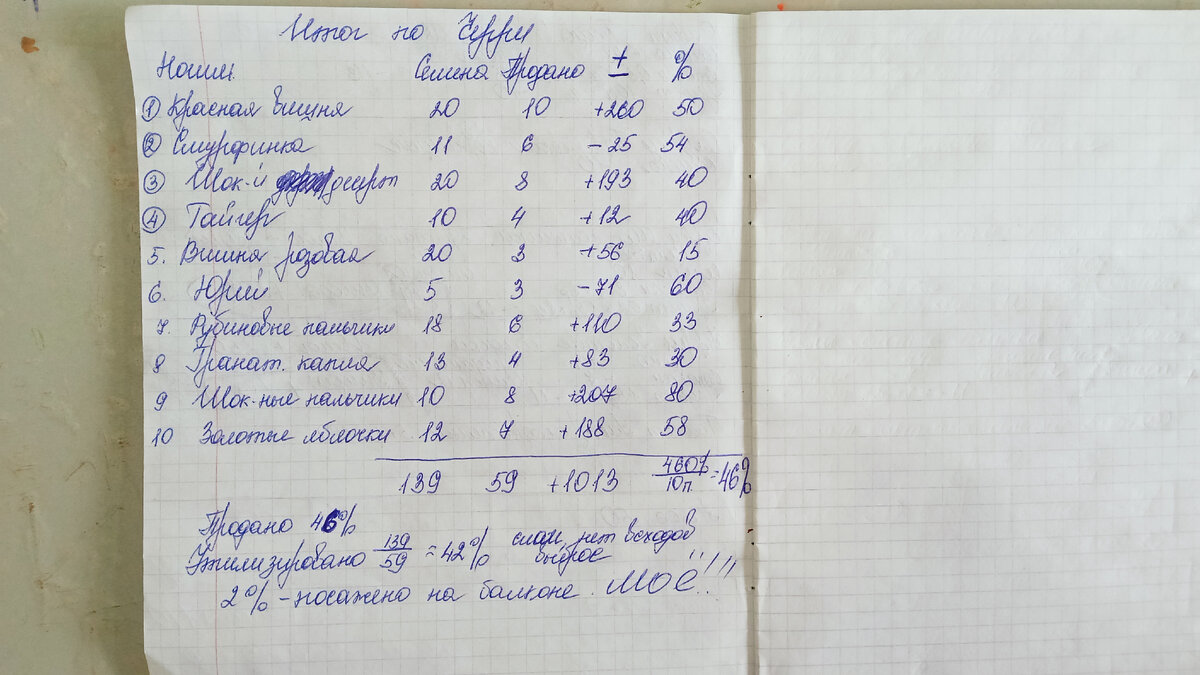 Итог по Черри
Наим. Семена Продано ± %
1 Красная вишня 20 10 +260 50
2 Смурфинка 11 6 -25 54
3 Шок-й десерт 20 8 +193 40
4 Тайгер 10 4 +12 40
5. Вишня розовая 20 3 +56 15
6. Юрий 5 3 -71 60
7. Рубиновые пальчики 18 6 +110 33
8 Гранат. капля 13 4 +83 30
9 Шок-ные пальчики 10 8 +207 80
10 Золотые яблочки 12 7 +188 58
139 59 +1013 460%/10п. = 46%
Продано 46%
Утилизировано 139/59 = 42% слаб. нет всходов
выброс
2% - посажено на балконе. МОЁ!!!